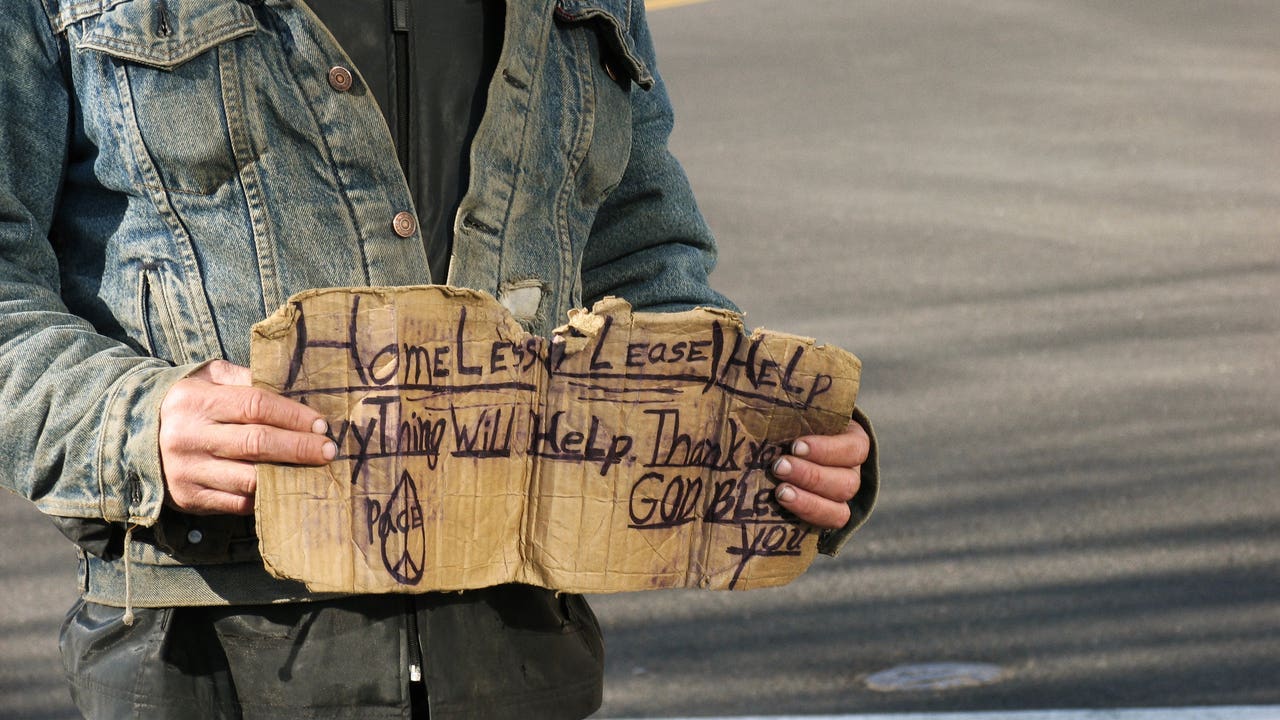 HomeLess PLease HeLp
nyThing Will HeLp. Thank you
GOD BLess
you
PaCE